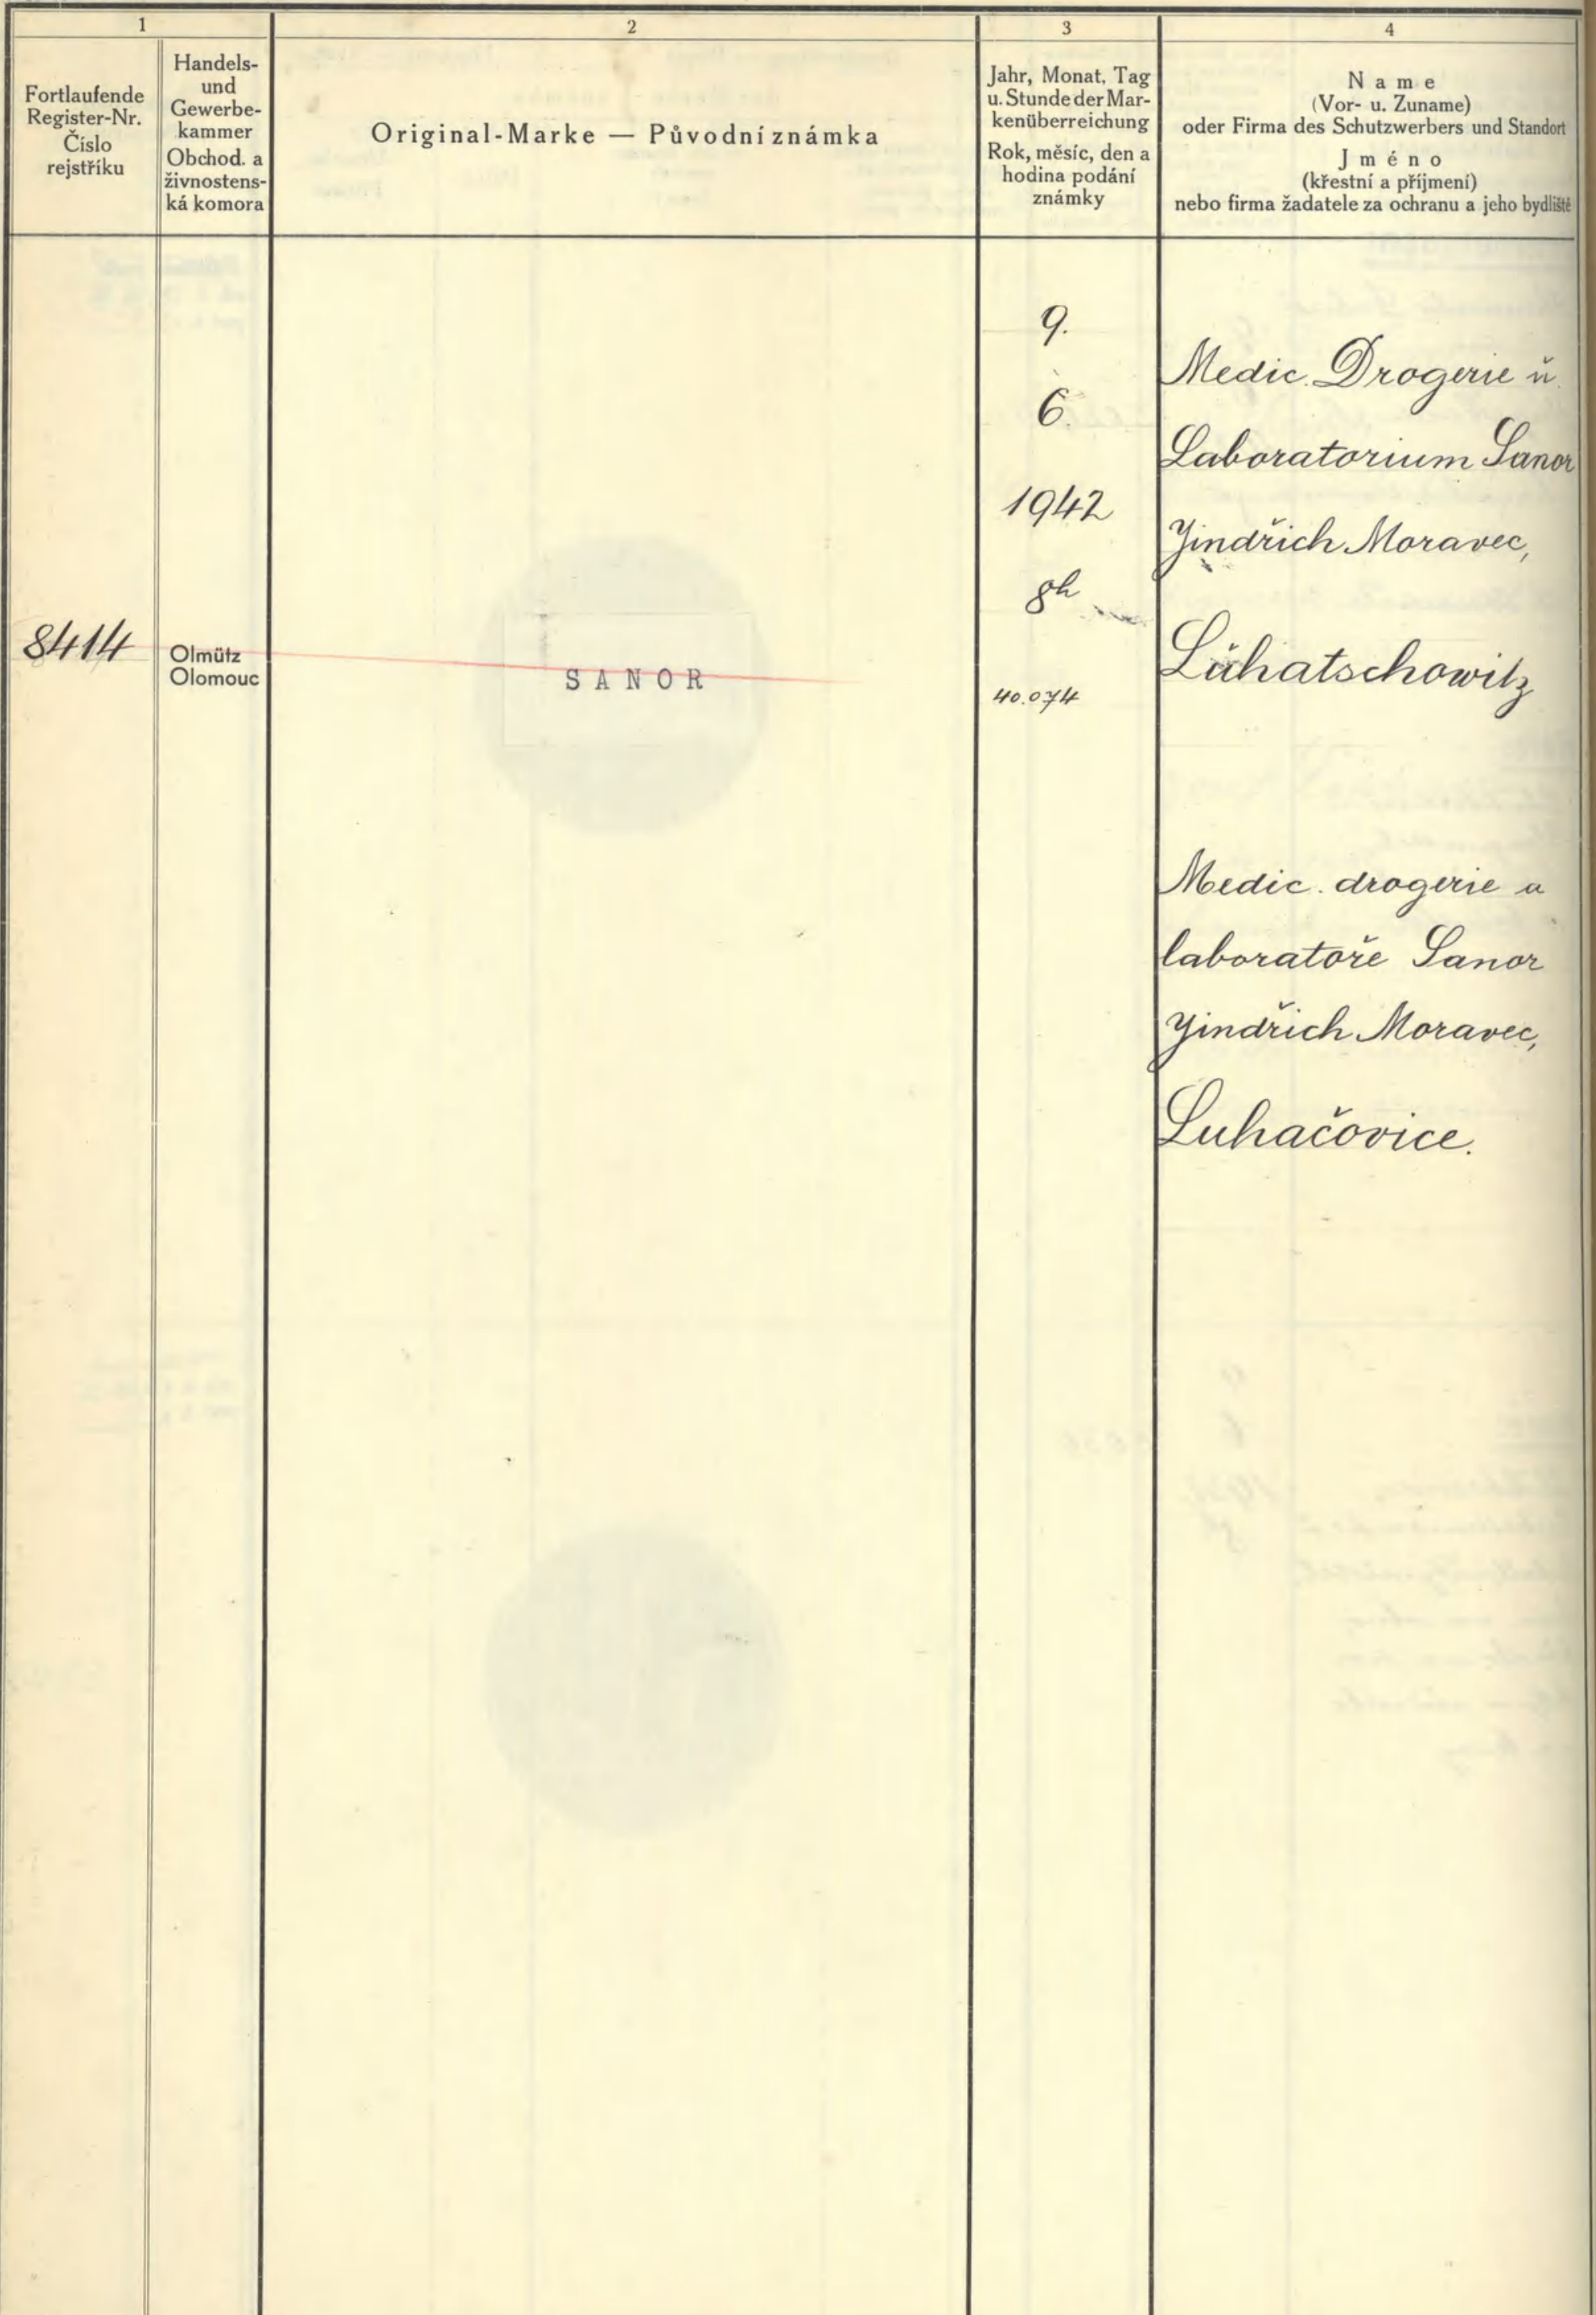 1
2
3
4
Fortlaufende
Register-Nr.
Číslo
rejstříku
Handels-
und
Gewerbe-
kammer
Obchod. a
živnostens-
ká komora
Original-Marke — Původní známka
Jahr, Monat, Tag
u. Stunde der Mar-
kenüberreichung
Rok, měsíc, den a
hodina podání
známky
Name
(Vor- u. Zuname)
oder Firma des Schutzwerbers und Standort
Jméno
(křestní a příjmení)
nebo firma žadatele za ochranu a jeho bydliště
8414
Olmütz
Olomouc
SANOR
9.
6.
1942
8h
40.074
Medic. Drogerie ŭ.
Laboratorium Sanor
Jindřich Moravec,
Lŭhatschowitz
Medic. drogerie a
laboratoře Sanor
Jindřich Moravec,
Luhačovice.